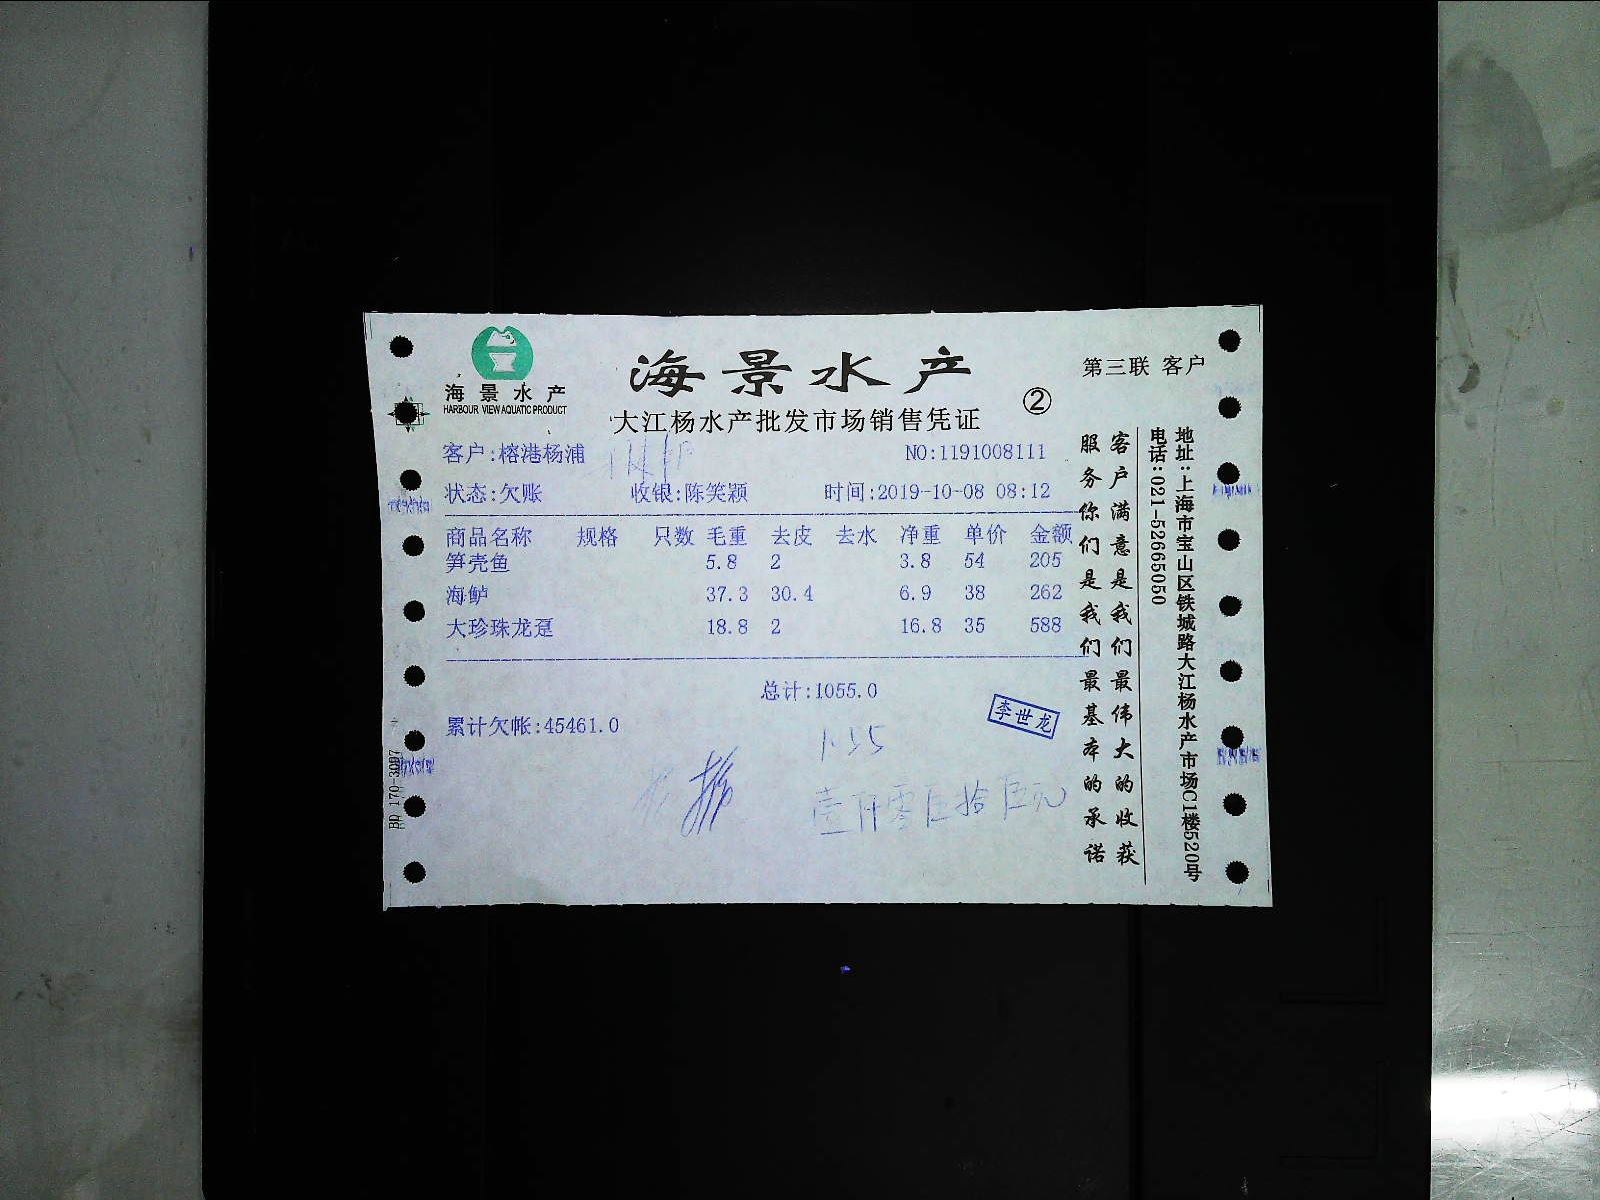 海景水产
HARBOUR VIEW AQUATIC PRODUCT
海景水产
大江杨水产批发市场销售凭证
②
第三联 客户
客户:榕港杨浦
NO:1191008111
状态:欠账 收银:陈笑颖 时间:2019-10-08 08:12
商品名称 规格 只数 毛重 去皮 去水 净重 单价 金额
笋壳鱼 5.8 2 3.8 54 205
海鲈 37.3 30.4 6.9 38 262
大珍珠龙趸 18.8 2 16.8 35 588
总计:1055.0
累计欠帐:45461.0
李世龙
壹仟零伍拾伍元
客户满意是我们最伟大的收获
服务你们是我们最基本的承诺
地址:上海市宝山区铁城路大江杨水产市场C1楼520号
电话:021-52665050